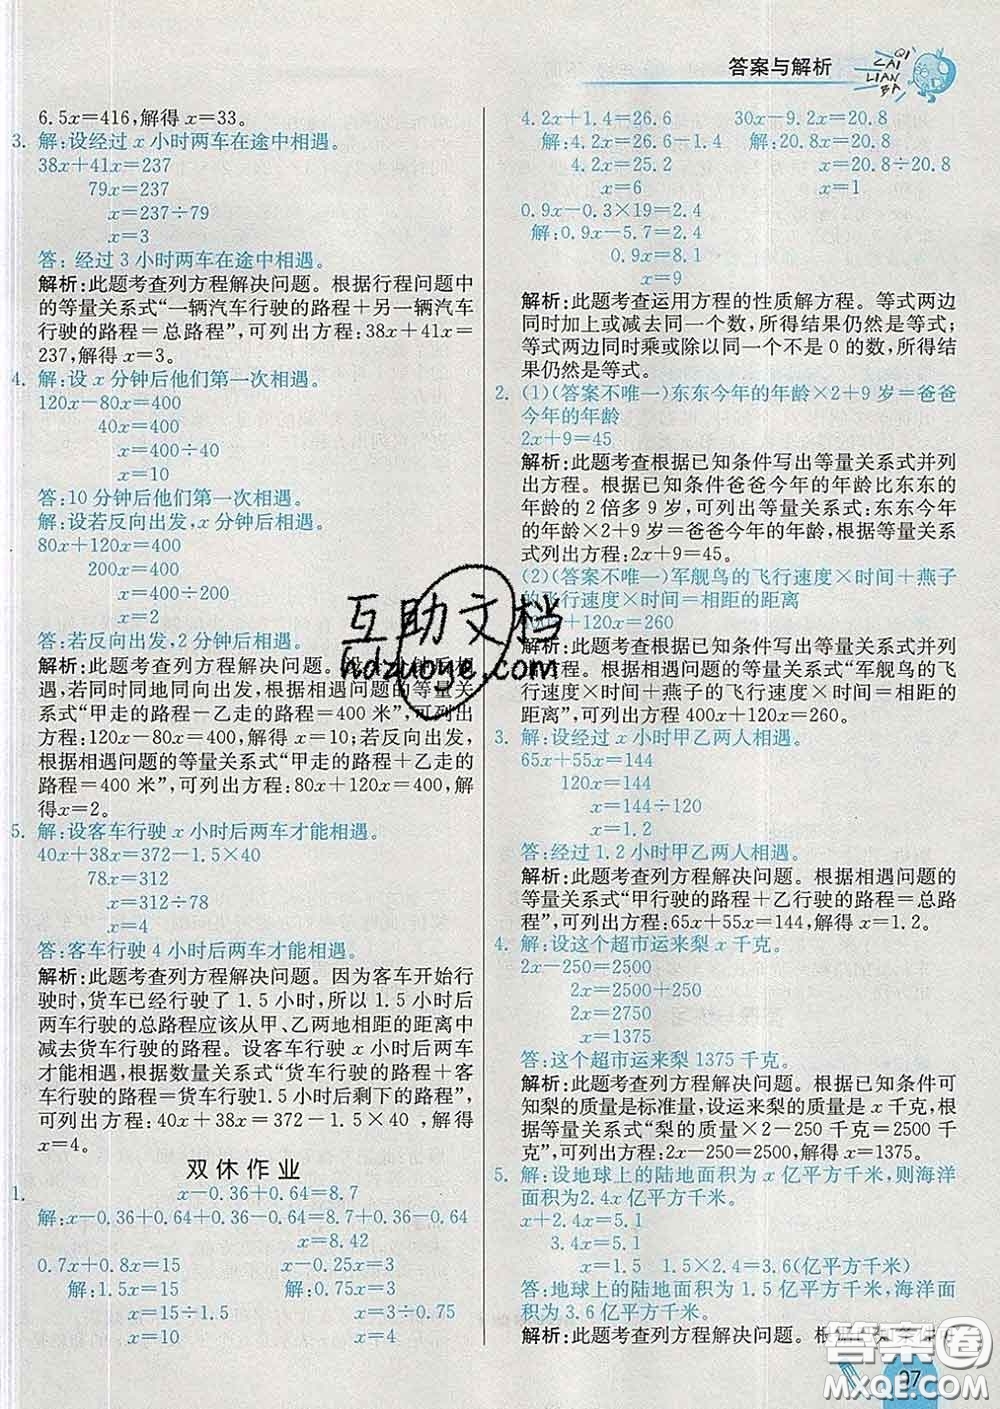 答案与解析
QI CAI LIAN BA
6.5x=416,解得 x=33。
3. 解:设经过 x 小时两车在途中相遇。
38x+41x=237
79x=237
x=237÷79
x=3
答: 经过 3 小时两车在途中相遇。
解析:此题考查列方程解决问题。根据行程问题中
的等量关系式“一辆汽车行驶的路程+另一辆汽车
行驶的路程=总路程”,可列出方程:38x+41x=
237,解得 x=3。
4. 解:设 x 分钟后他们第一次相遇。
120x-80x=400
40x=400
x=400÷40
x=10
答:10 分钟后他们第一次相遇。
解:设若反向出发,x 分钟后相遇。
80x+120x=400
200x=400
x=400÷200
x=2
答:若反向出发,2 分钟后相遇。
解析:此题考查列方程解决问题。
遇,若同时同地同向出发,根据相遇问题的等量关
系式“甲走的路程-乙走的路程=400 米”,可列出
方程:120x-80x=400,解得 x=10;若反向出发,
根据相遇问题的等量关系式“甲走的路程+乙走的
路程=400 米”,可列出方程:80x+120x=400,解
得x=2。
5. 解:设客车行驶 x 小时后两车才能相遇。
40x+38x=372-1.5×40
78x=312
x=312÷78
x=4
答:客车行驶 4 小时后两车才能相遇。
解析:此题考查列方程解决问题。因为客车开始行
驶时,货车已经行驶了 1.5 小时,所以 1.5 小时后
两车行驶的总路程应该从甲、乙两地相距的距离中
减去货车行驶的路程。设客车行驶 x 小时后两车
才能相遇,根据数量关系式“货车行驶的路程+客
车行驶的路程=货车行驶1.5小时后剩下的路程”,
可列出方程:40x+38x=372-1.5×40,解得
x=4。
双休作业
1. x-0.36+0.64=8.7
解:x-0.36+0.64+0.36-0.64=8.7+0.36-0.64
x=8.42
0.7x+0.8x=15 x-0.25x=3
解:1.5x=15 解:0.75x=3
x=15÷1.5 x=3÷0.75
x=10 x=4
4.2x+1.4=26.6 30x-9.2x=20.8
解:4.2x=26.6-1.4 解:20.8x=20.8
4.2x=25.2 x=20.8÷20.8
x=6 x=1
0.9x-0.3×19=2.4
解:0.9x-5.7=2.4
0.9x=8.1
x=9
解析:此题考查运用方程的性质解方程。等式两边
同时加上或减去同一个数,所得结果仍然是等式;
等式两边同时乘或除以同一个不是 0 的数,所得结
果仍然是等式。
2. (1)(答案不唯一)东东今年的年龄×2+9 岁=爸爸
今年的年龄
2x+9=45
解析:此题考查根据已知条件写出等量关系式并列
出方程。根据条件爸爸今年的年龄比东东今年
的年龄的 2 倍多 9 岁,可得出等量关系式:东东今年
的年龄×2+9 岁=爸爸今年的年龄,根据等量关
系式列出方程:2x+9=45。
(2)(答案不唯一)军舰鸟的飞行速度×时间+燕子
的飞行速度×时间=相距的距离
+10x=260
解析:此题考查根据已知条件写出等量关系式并列
程。根据相遇问题的等量关系式“军舰鸟的飞
行速度×时间+燕子的飞行速度×时间=相距的
距离”,可列出方程 400x+10x=260。
3. 解:设经过 x 小时甲乙两人相遇。
65x+55x=144
120x=144
x=144÷120
x=1.2
答:经过 1.2 小时甲乙两人相遇。
解析:此题考查列方程解决问题。根据相遇问题的
等量关系式“甲行驶的路程+乙行驶的路程=总路
程”,可列出方程:65x+55x=144,解得 x=1.2。
4. 解:设这个超市运来梨 x 千克。
2x-250=2500
2x=2500+250
2x=2750
x=1375
答:这个超市运来梨 1375 千克。
解析:此题考查列方程解决问题。根据已知条件可
知梨的质量是标准量,设运来梨的质量是 x 千克,根
据等量关系式“梨的质量×2-250 千克=2500 千
克”,可列出方程:2x-250=2500,解得 x=1375。
5. 解:设地球上的陆地面积为 x 亿平方千米,则海洋
面积为2.4x亿平方千米。
x+2.4x=5.1
3.4x=5.1
x=1.5 1.5×2.4=3.6(亿平方千米)
答:地球上的陆地面积为 1.5 亿平方千米,海洋面
积为 3.6 亿平方千米。
解析:此题考查列方程解决问题。
97
互助文档
hdzuoye.com
答案圈
MXQE.COM